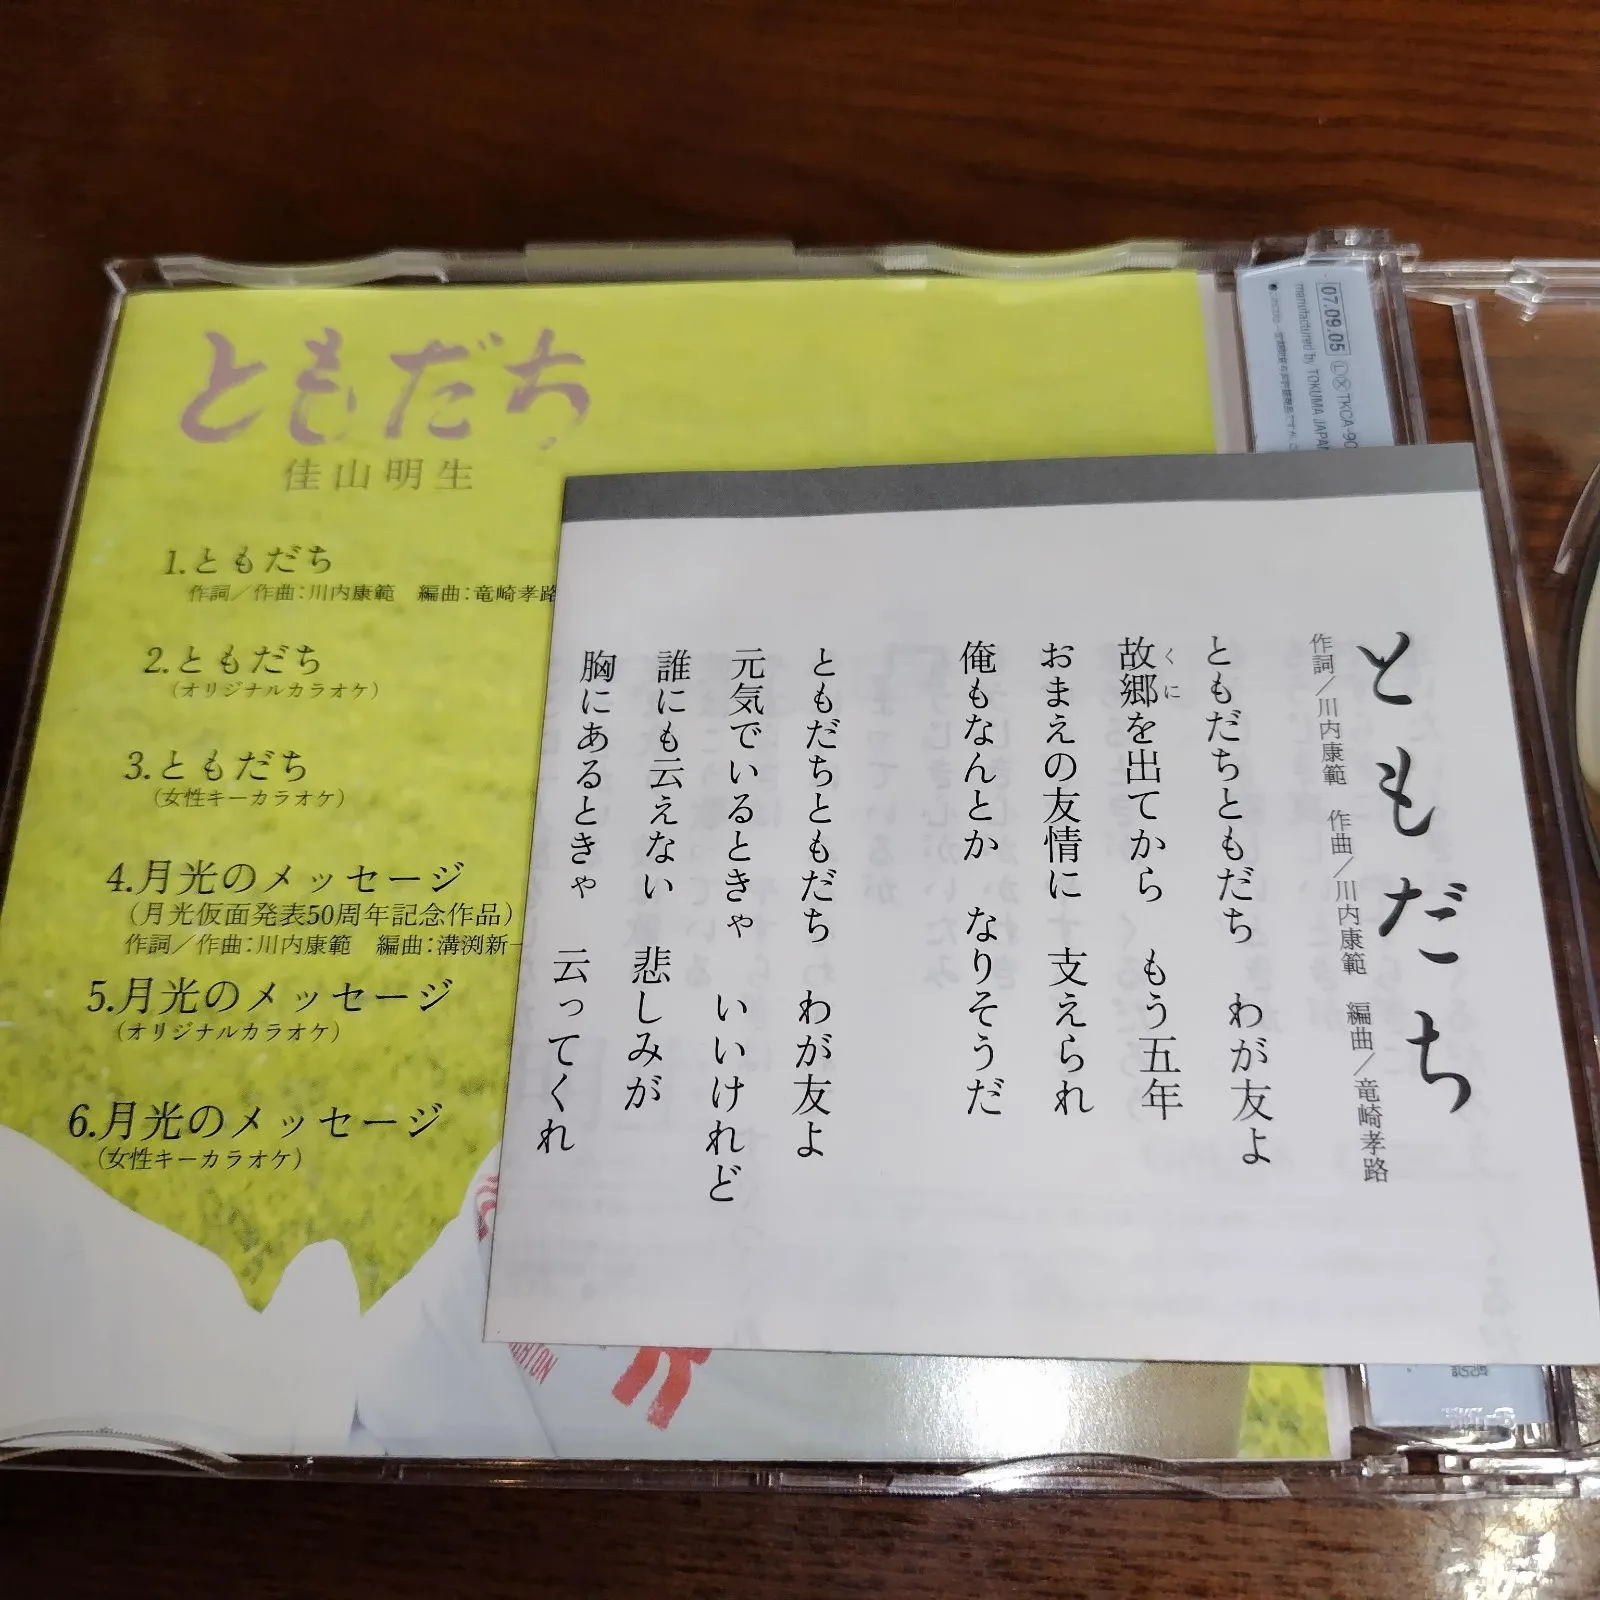 ともだち
佳山明生
1.ともだち
作詞／作曲：川内康範　編曲：竜崎孝路
2.ともだち
（オリジナルカラオケ）
3.ともだち
（女性キーカラオケ）
4.月光のメッセージ
（月光仮面発表50周年記念作品）
作詞／作曲：川内康範　編曲：溝渕新一
5.月光のメッセージ
（オリジナルカラオケ）
6.月光のメッセージ
（女性キーカラオケ）
07.09.05 Ⓛ Ⓧ TKCA-90
manufactured by TOKUMA JAPAN
ともだち
作詞／川内康範　作曲／川内康範　編曲／竜崎孝路
ともだちともだち　わが友よ
故郷を出てから　もう五年
くに
おまえの友情に　支えられ
俺もなんとか　なりそうだ
ともだちともだち　わが友よ
元気でいるときゃ　いいけれど
誰にも云えない　悲しみが
胸にあるときゃ　云ってくれ